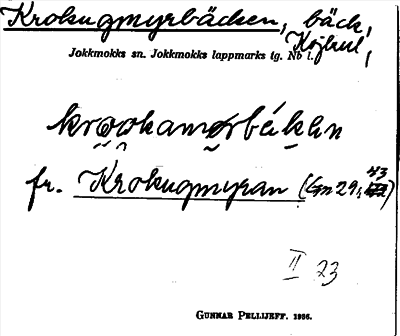 Krokugmyrbäcken, bäck,
Kojkul,
Jokkmokks sn. Jokkmokks lappmarks tg. Nb l.
krookamørbékən
fr. Krokugmyran (Gm 29, 43)
II 23
GUNNAR PELLIJEFF. 1936.